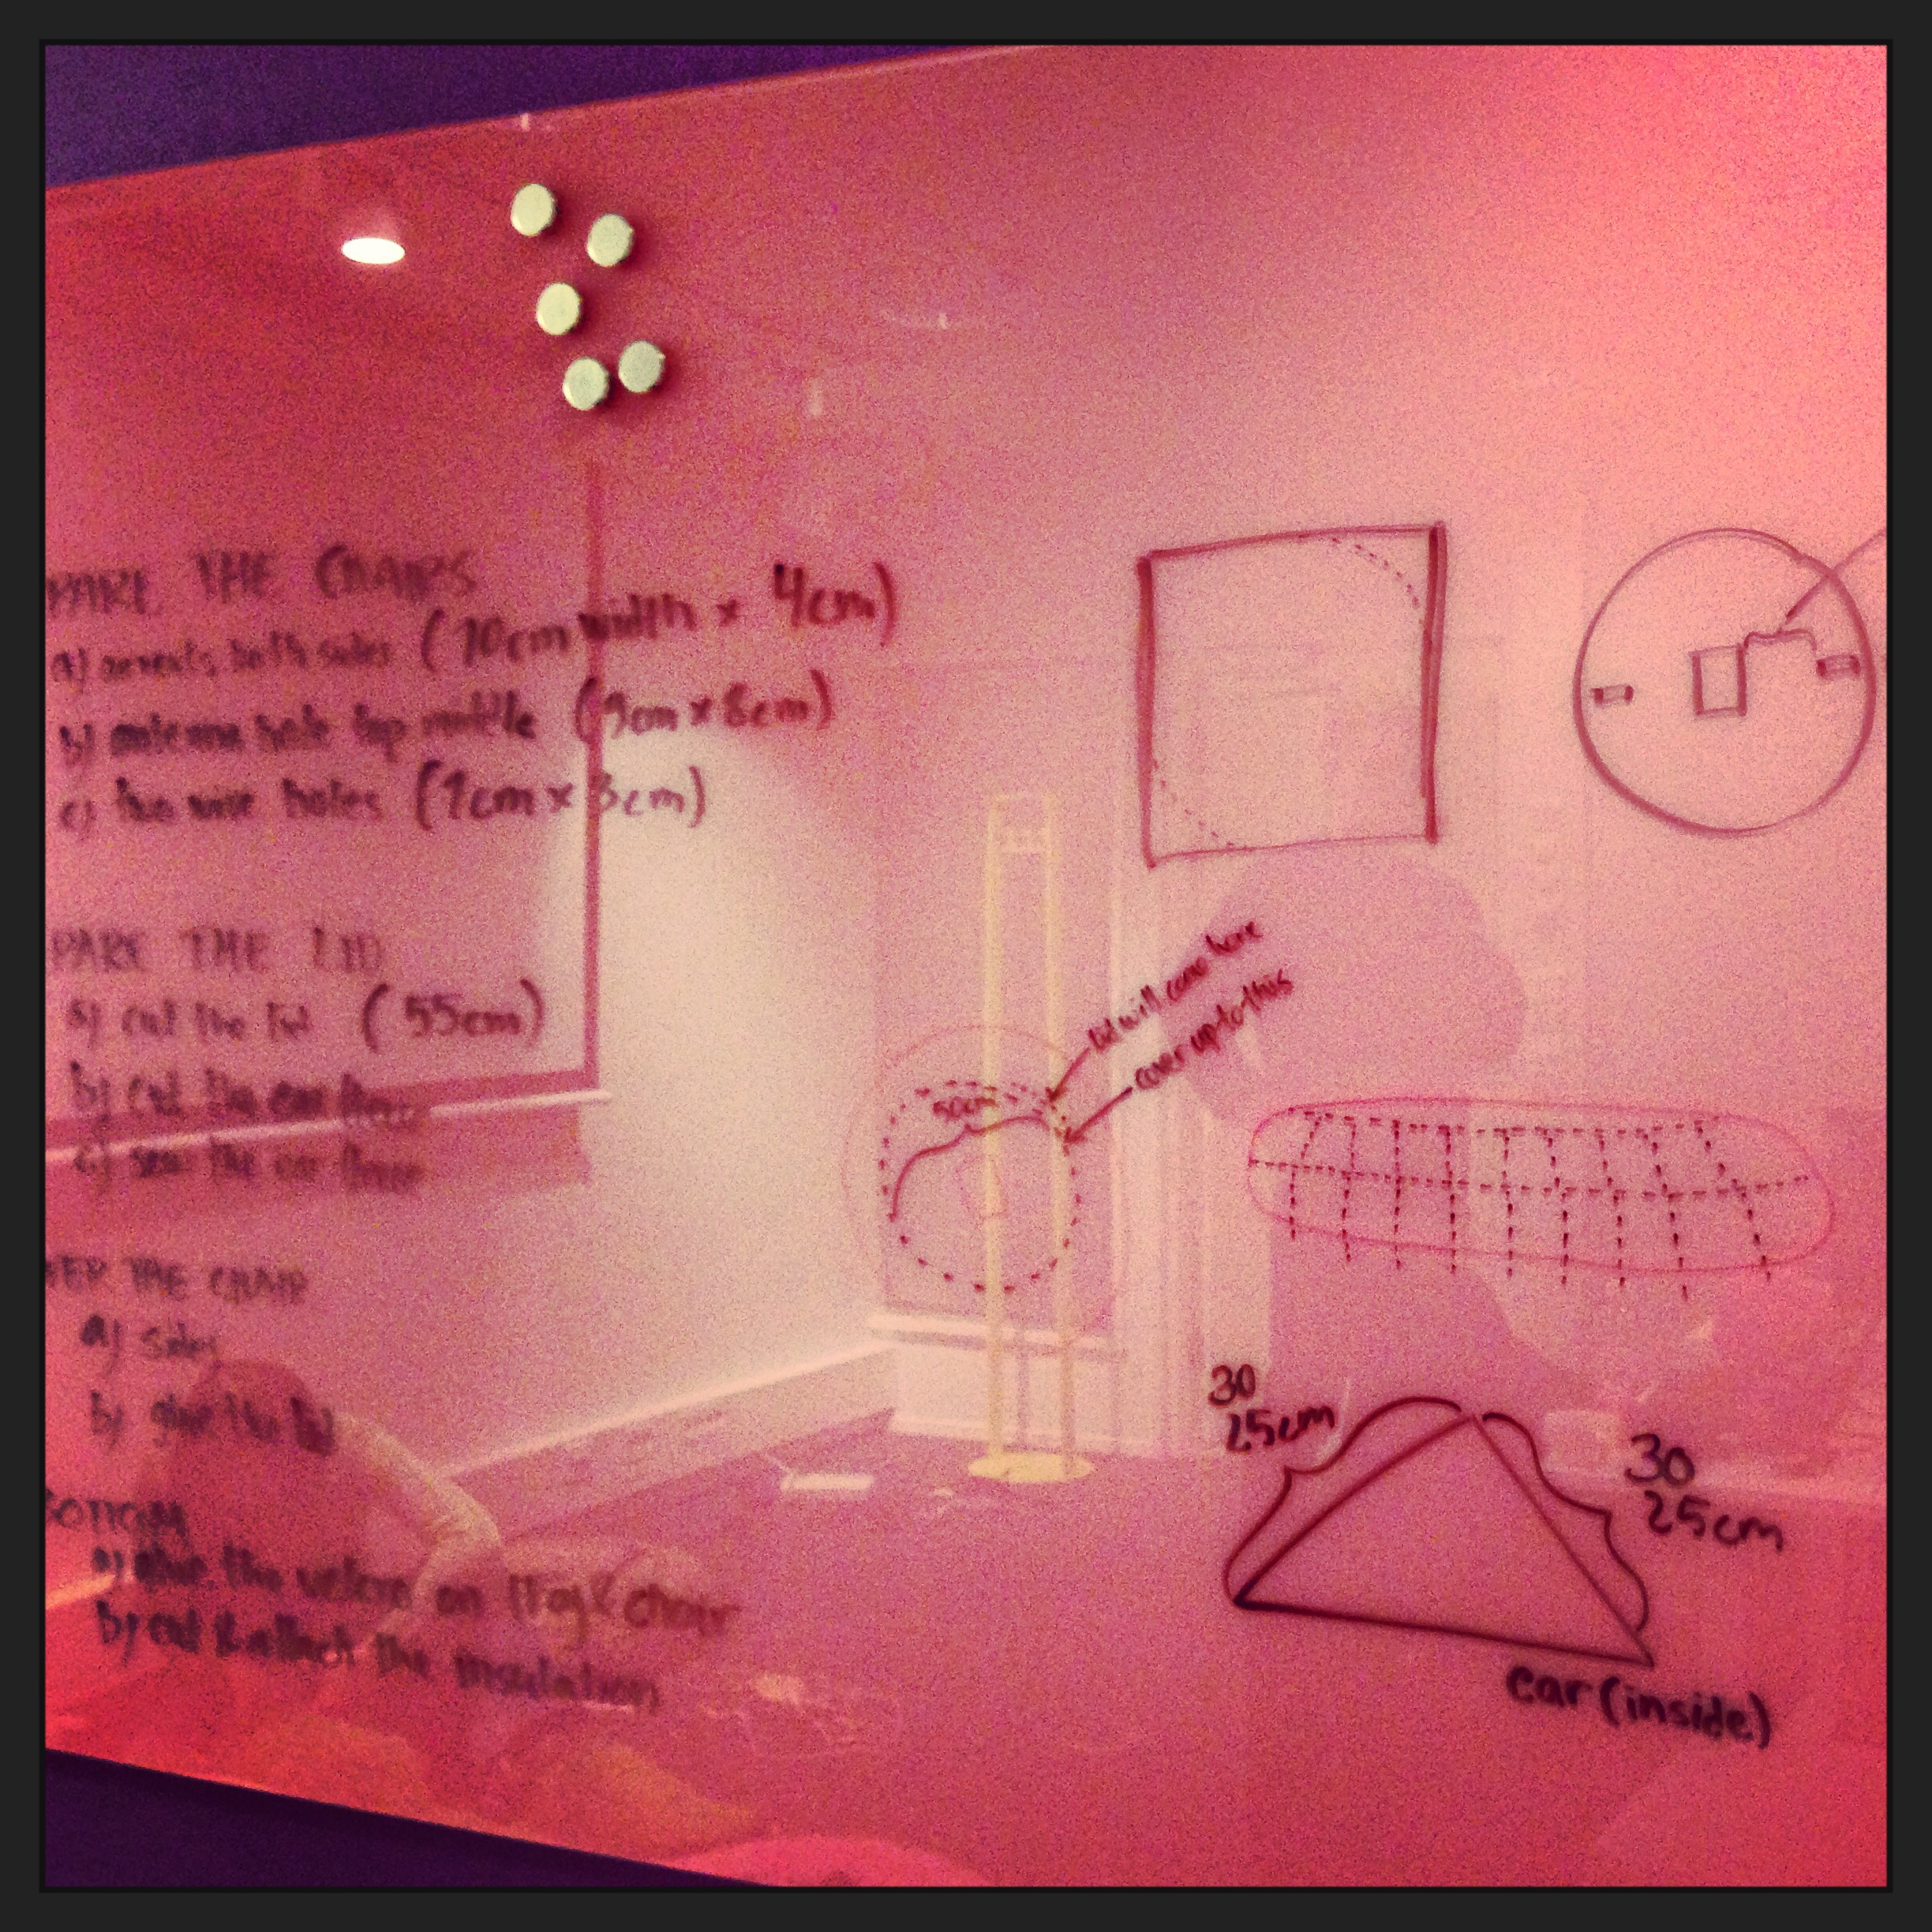 PARE THE CHAIRS
a) both sides (10cm width x 4cm)
b) antenna hole top middle (9cm x 8cm)
c) two wire holes (1cm x 3cm)
PARE THE LID
a) cut the lid (55cm)
b) cut the ear
c) sew the ear
VER THE CHAIR
a) sides
b) glue the lid
BOTTOM
a) glue the velcro on & chair
b) cut & attach the insulation
lid will come here
cover up to this
50cm
30
25cm
30
25cm
ear (inside)